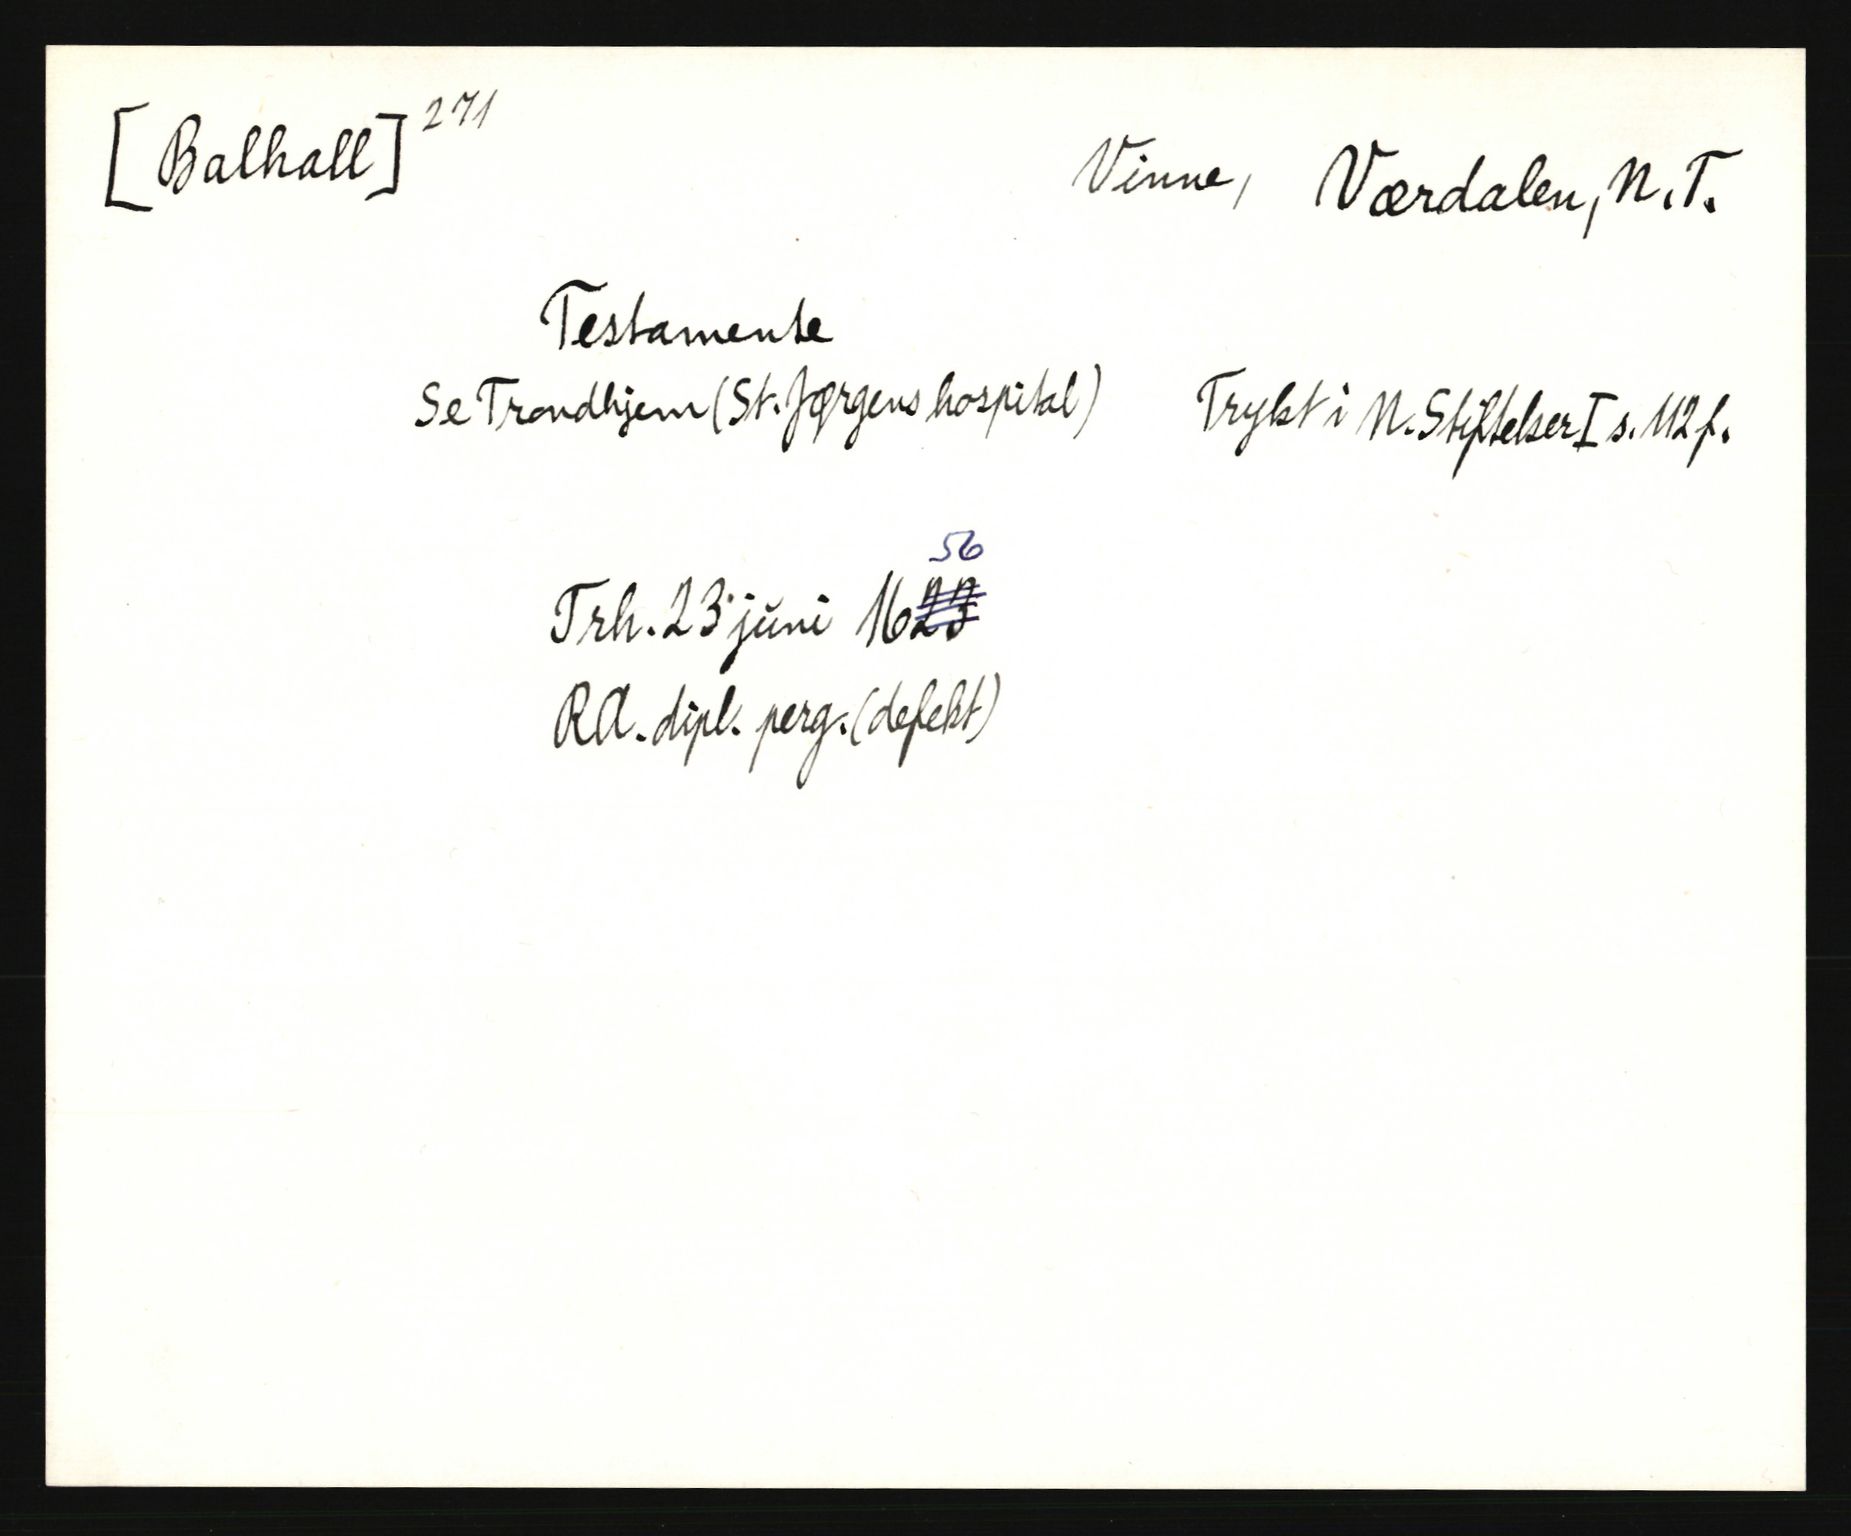 [Balhall] 271
Vinne, Værdalen, N.T.
Testamente
Se Trondhjem (St. Jørgens hospital) Trykt i N. Stiftelser I s. 112 f.
56
Trh. 23 juni 1623
RA. dipl. perg. (defekt)